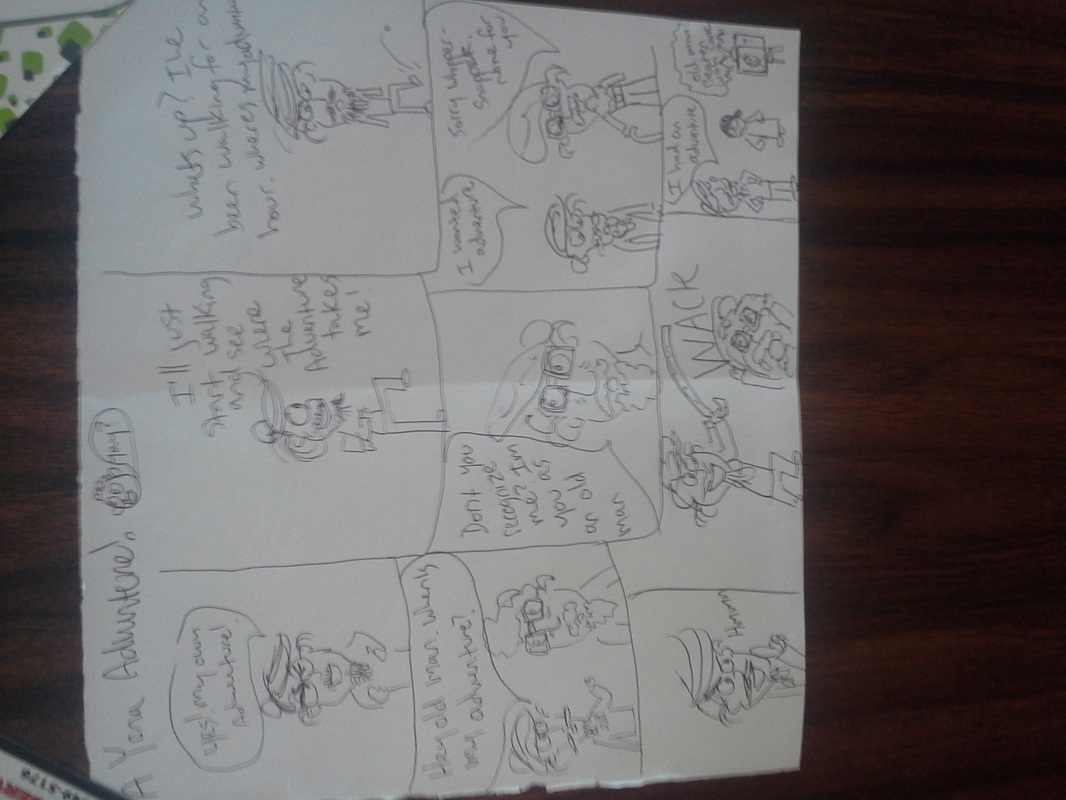 A Yona
yes! my own
Adventure!
I'll just
start walking
and see
where
the
Adventure
takes
me!
whats up? I've
been walking for an
hour. wheres my adventure
Hey old man. when's
my adventure?
Dont you
recognize
me? I'm
you as
an old
man
I wanted
adventure
Sorry whipper-
snapper.
None for
you
Hmmm
WACK
I had an
adventure
old man